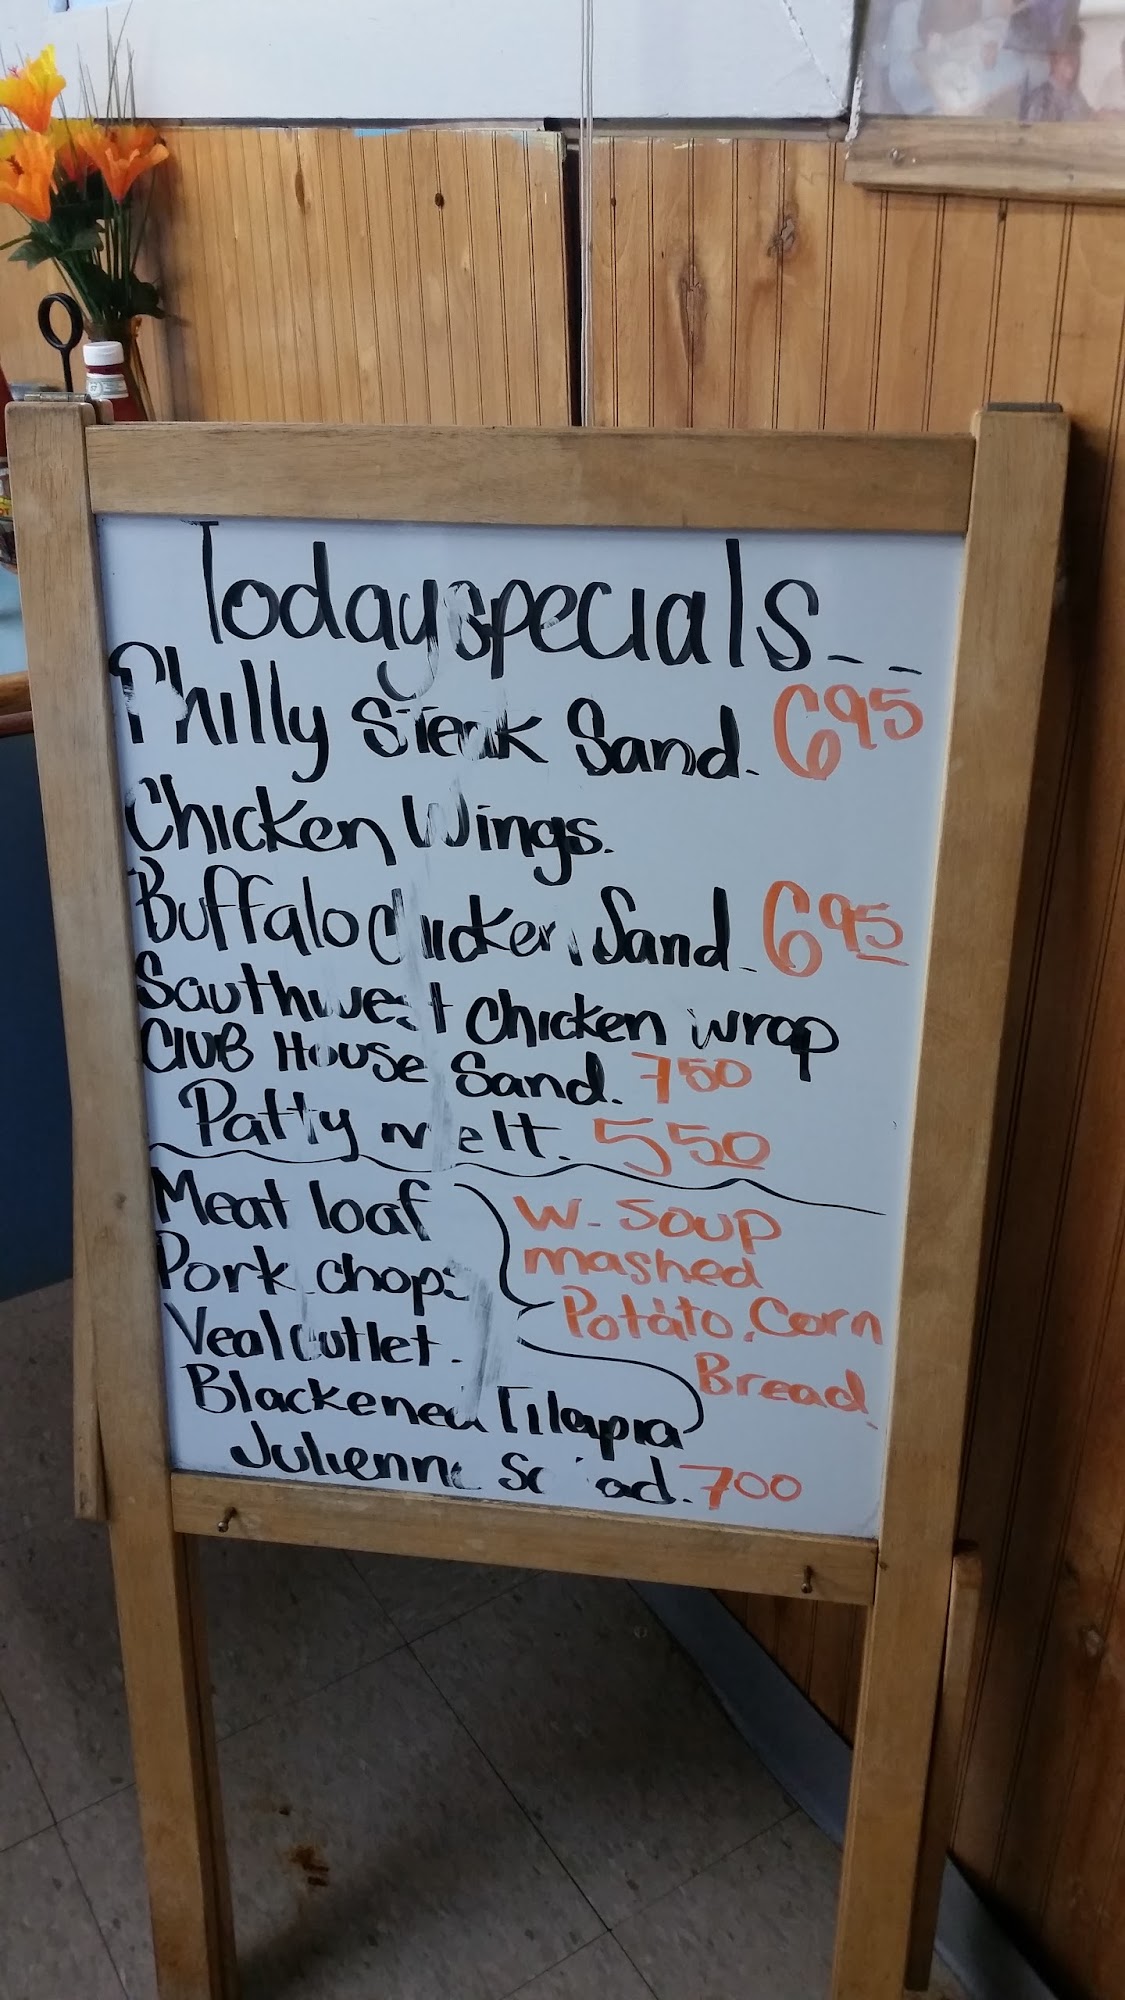 Today specials...
Philly Steak Sand. 6 95
Chicken Wings.
Buffalo Chicken Sand. 6 95
Southwest Chicken wrap
Club House Sand. 7 50
Patty melt. 5 50
Meat loaf
Pork chops
Veal cutlet.
Blackened Tilapia
W. Soup
mashed
Potato. Corn
Bread.
Julienne Salad. 7 00